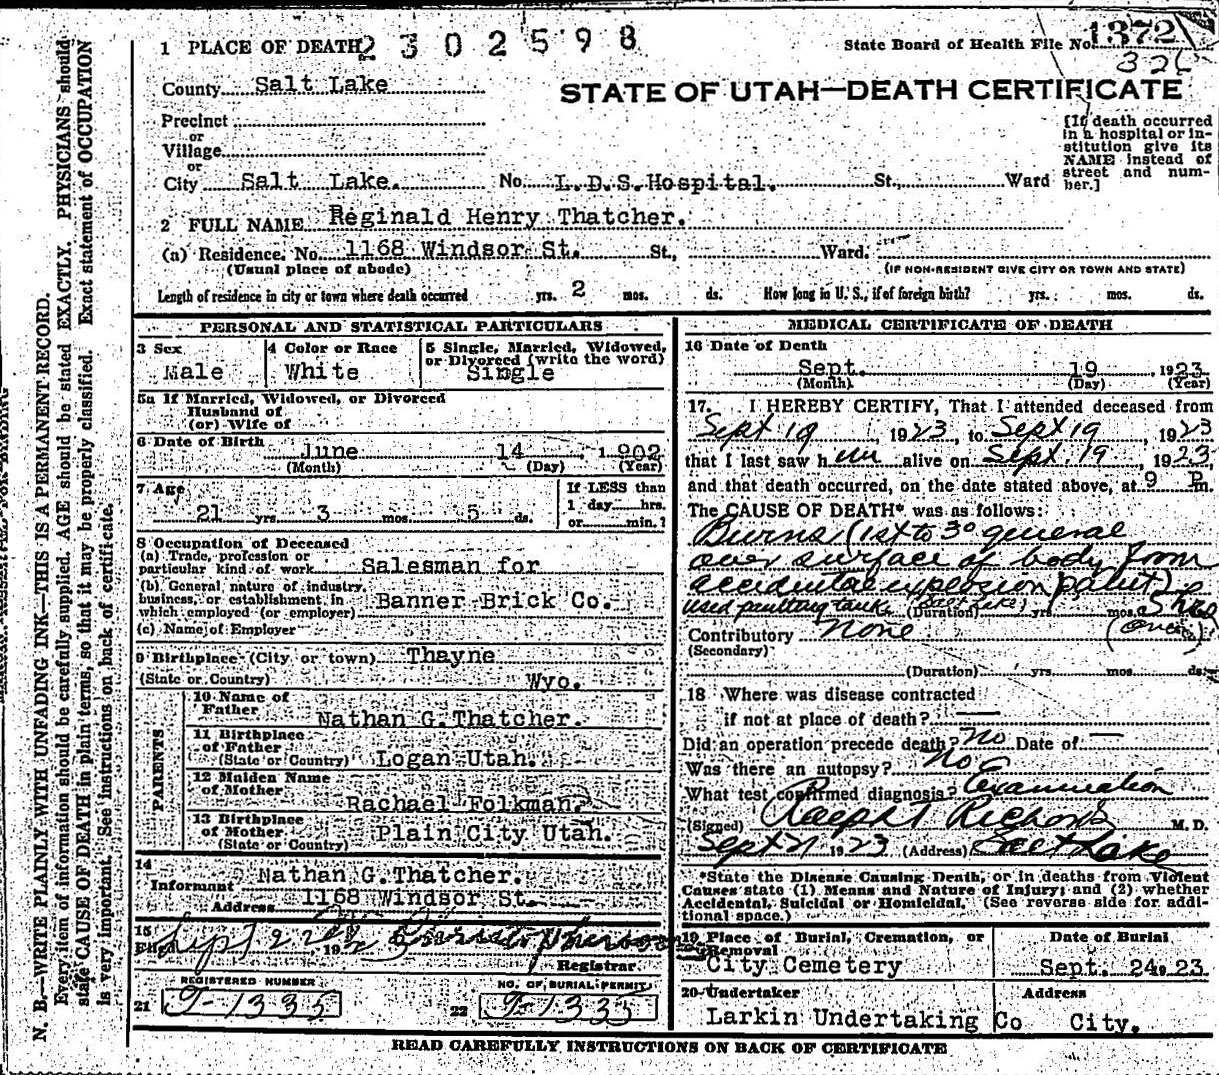 1 PLACE OF DEATH 2302598
State Board of Health File No. 1372
326
County Salt Lake
STATE OF UTAH—DEATH CERTIFICATE
Precinct
or
Village
or
City Salt Lake. No. L.D.S. Hospital. St., Ward
[If death occurred
in a hospital or in-
stitution give its
NAME instead of
street and num-
ber.]
2 FULL NAME Reginald Henry Thatcher.
(a) Residence. No. 1168 Windsor St. St., Ward.
(Usual place of abode) (IF NON-RESIDENT GIVE CITY OR TOWN AND STATE)
Length of residence in city or town where death occurred yrs. 2 mos. ds. How long in U. S., if of foreign birth? yrs. mos. ds.
PERSONAL AND STATISTICAL PARTICULARS
3 Sex
Male
4 Color or Race
White
5 Single, Married, Widowed,
or Divorced (write the word)
Single
5a If Married, Widowed, or Divorced
Husband of
(or) Wife of
6 Date of Birth June 14, 1902
(Month) (Day) (Year)
7 Age
21 yrs. 3 mos. 5 ds.
If LESS than
1 day hrs.
or min.?
8 Occupation of Deceased
(a) Trade, profession or
particular kind of work Salesman for
(b) General nature of industry,
business, or establishment in
which employed (or employer) Banner Brick Co.
(c) Name of Employer
9 Birthplace (City or town) Thayne
(State or Country) Wyo.
PARENTS
10 Name of
Father
Nathan G. Thatcher.
11 Birthplace
of Father
(State or Country) Logan Utah.
12 Maiden Name
of Mother
Rachael Folkman.
13 Birthplace
of Mother
(State or Country) Plain City Utah.
14
Informant Nathan G. Thatcher.
Address 1168 Windsor St.
15
Filed Sept 22 192
Registrar
REGISTERED NUMBER
21 9-1335
NO. OF BURIAL PERMIT
22 9-1335
MEDICAL CERTIFICATE OF DEATH
16 Date of Death
Sept. 19, 1923
(Month) (Day) (Year)
17. I HEREBY CERTIFY, That I attended deceased from
Sept 19, 1923, to Sept 19, 1923
that I last saw him alive on Sept. 19, 1923,
and that death occurred, on the date stated above, at 9 P.m.
The CAUSE OF DEATH* was as follows:
Burns (1st to 3° general
over surface of body from
accidental explosion paint)
used painting tank (Salt Lake) (Duration) yrs. mos. 5 hrs ds.
Contributory None
(Secondary)
(Duration) yrs. mos. ds.
18 Where was disease contracted
if not at place of death? —
Did an operation precede death? No Date of —
Was there an autopsy? No
What test confirmed diagnosis? Examination
(Signed) Ralph T Richards M. D.
Sept 21 1923 (Address) Salt Lake
*State the Disease Causing Death, or in deaths from Violent
Causes state (1) Means and Nature of Injury; and (2) whether
Accidental, Suicidal or Homicidal. (See reverse side for addi-
tional space.)
19 Place of Burial, Cremation, or
Removal
City Cemetery
Date of Burial
Sept. 24, 23
20 Undertaker
Larkin Undertaking Co
Address
City.
READ CAREFULLY INSTRUCTIONS ON BACK OF CERTIFICATE
N. B.—WRITE PLAINLY WITH UNFADING INK—THIS IS A PERMANENT RECORD.
Every item of information should be carefully supplied. AGE should be stated EXACTLY. PHYSICIANS should
state CAUSE OF DEATH in plain terms, so that it may be properly classified. Exact statement of OCCUPATION
is very important. See instructions on back of certificate.